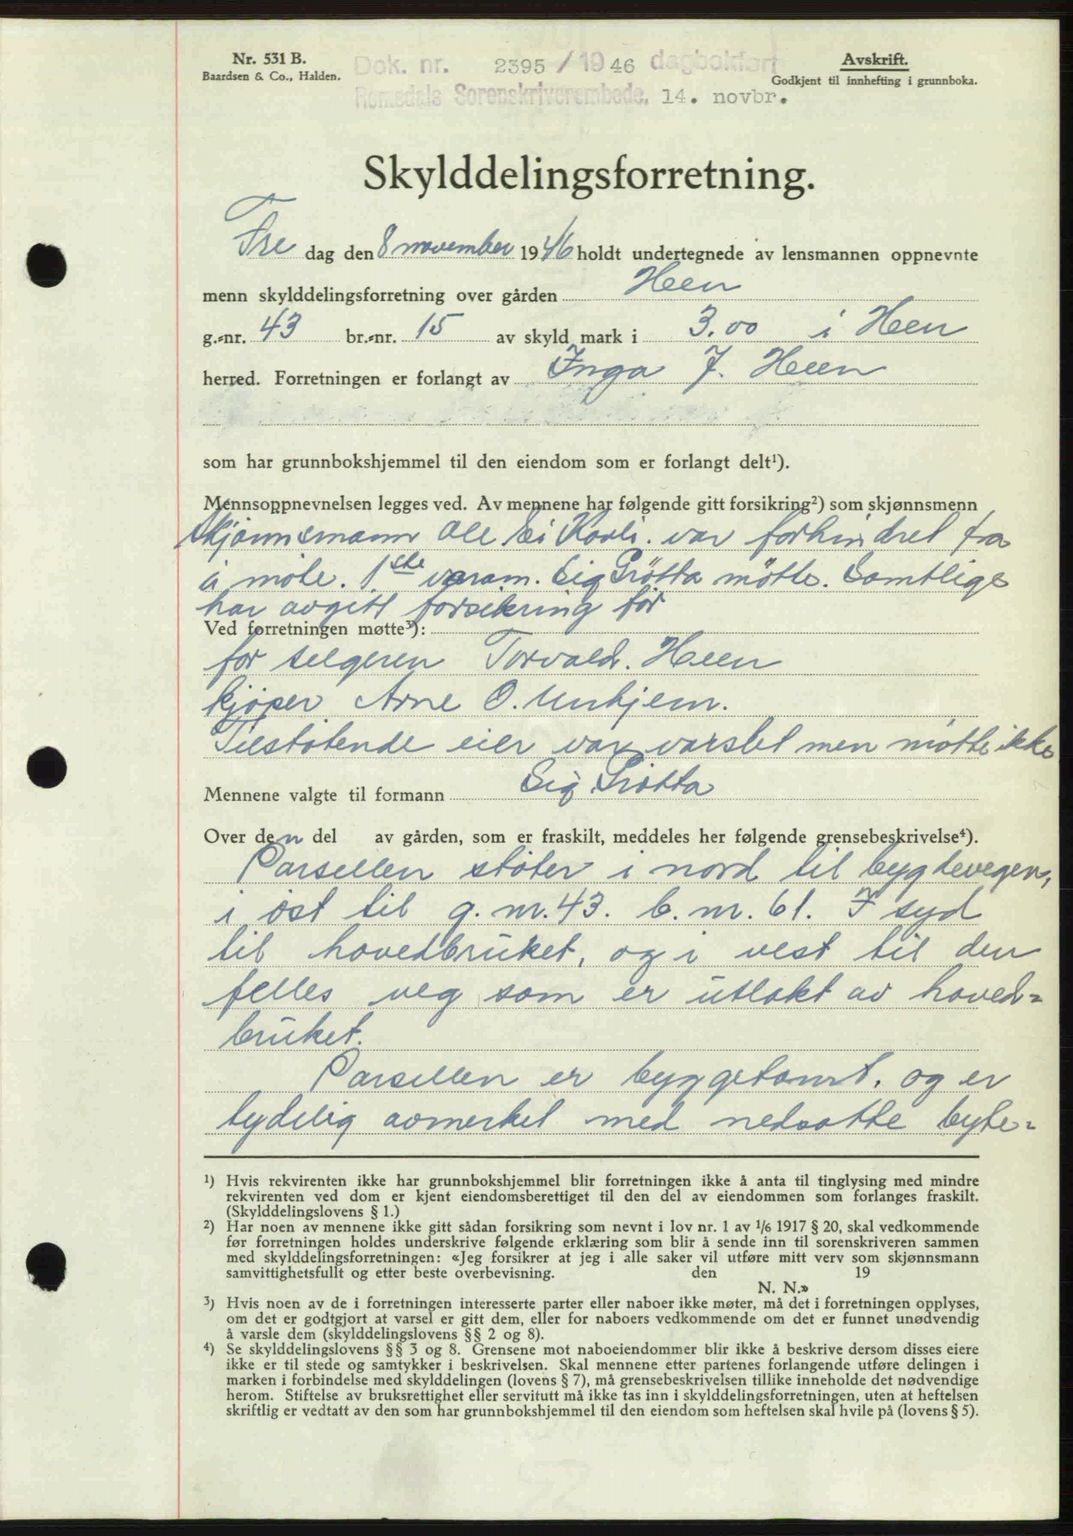 Nr. 531 B.
Baardsen & Co., Halden.
Dok. nr. 2395 / 19 46 dagbokført
Romsdals Sorenskriverembede, 14. novbr.
Avskrift.
Godkjent til innhefting i grunnboka.
Skylddelingsforretning.
Fre dag den 8 november 1946 holdt undertegnede av lensmannen oppnevnte
menn skylddelingsforretning over gården Heen
g.-nr. 43 br.-nr. 15 av skyld mark i 3.00 i Heen
herred. Forretningen er forlangt av Inga J. Heen
som har grunnbokshjemmel til den eiendom som er forlangt delt¹).
Mennsoppnevnelsen legges ved. Av mennene har følgende gitt forsikring²) som skjønnsmenn
Skjønnsmann Ole Ei Kavli. var forhindret fra
å møte. 1ste varam. Sig Grøtta møtte. Samtlige
har avgitt forsikring før
Ved forretningen møtte³):
for selgeren Torvald. Heen
kjøper Arne O. Unhjem.
Tilstøtende eier var varslet men møtte ikke
Mennene valgte til formann Sig. Grøtta
Over den del av gården, som er fraskilt, meddeles her følgende grensebeskrivelse⁴).
Parsellen støter i nord til bygdevegen,
i øst til g. nr. 43. b. nr. 61. I syd
til hovedbruket, og i vest til den
felles veg som er utlakt av hoved=
bruket.
Parsellen er byggetomt, og er
tydelig avmerket med nedsatte byte=
¹) Hvis rekvirenten ikke har grunnbokshjemmel blir forretningen ikke å anta til tinglysing med mindre
rekvirenten ved dom er kjent eiendomsberettiget til den del av eiendommen som forlanges fraskilt.
(Skylddelingslovens § 1.)
²) Har noen av mennene ikke gitt sådan forsikring som nevnt i lov nr. 1 av 1/6 1917 § 20, skal vedkommende
før forretningen holdes underskrive følgende erklæring som blir å sende inn til sorenskriveren sammen
med skylddelingsforretningen: «Jeg forsikrer at jeg i alle saker vil utføre mitt verv som skjønnsmann
samvittighetsfullt og etter beste overbevisning. den 19
N. N.»
³) Hvis noen av de i forretningen interesserte parter eller naboer ikke møter, må det i forretningen opplyses,
om det er godtgjort at varsel er gitt dem, eller for naboers vedkommende om det er funnet unødvendig
å varsle dem (skylddelingslovens §§ 2 og 8).
⁴) Se skylddelingslovens §§ 3 og 8. Grensene mot naboeiendommer blir ikke å beskrive dersom disses eiere
ikke er til stede og samtykker i beskrivelsen. Skal mennene etter partenes forlangende utføre delingen i
marken i forbindelse med skylddelingen (lovens § 7), må grensebeskrivelsen tillike inneholde det nødvendige
herom. Stiftelse av bruksrettighet eller servitutt må ikke tas inn i skylddelingsforretningen, uten at heftelsen
skriftlig er vedtatt av den som har grunnbokshjemmel til den eiendom som heftelsen skal hvile på (lovens § 5).